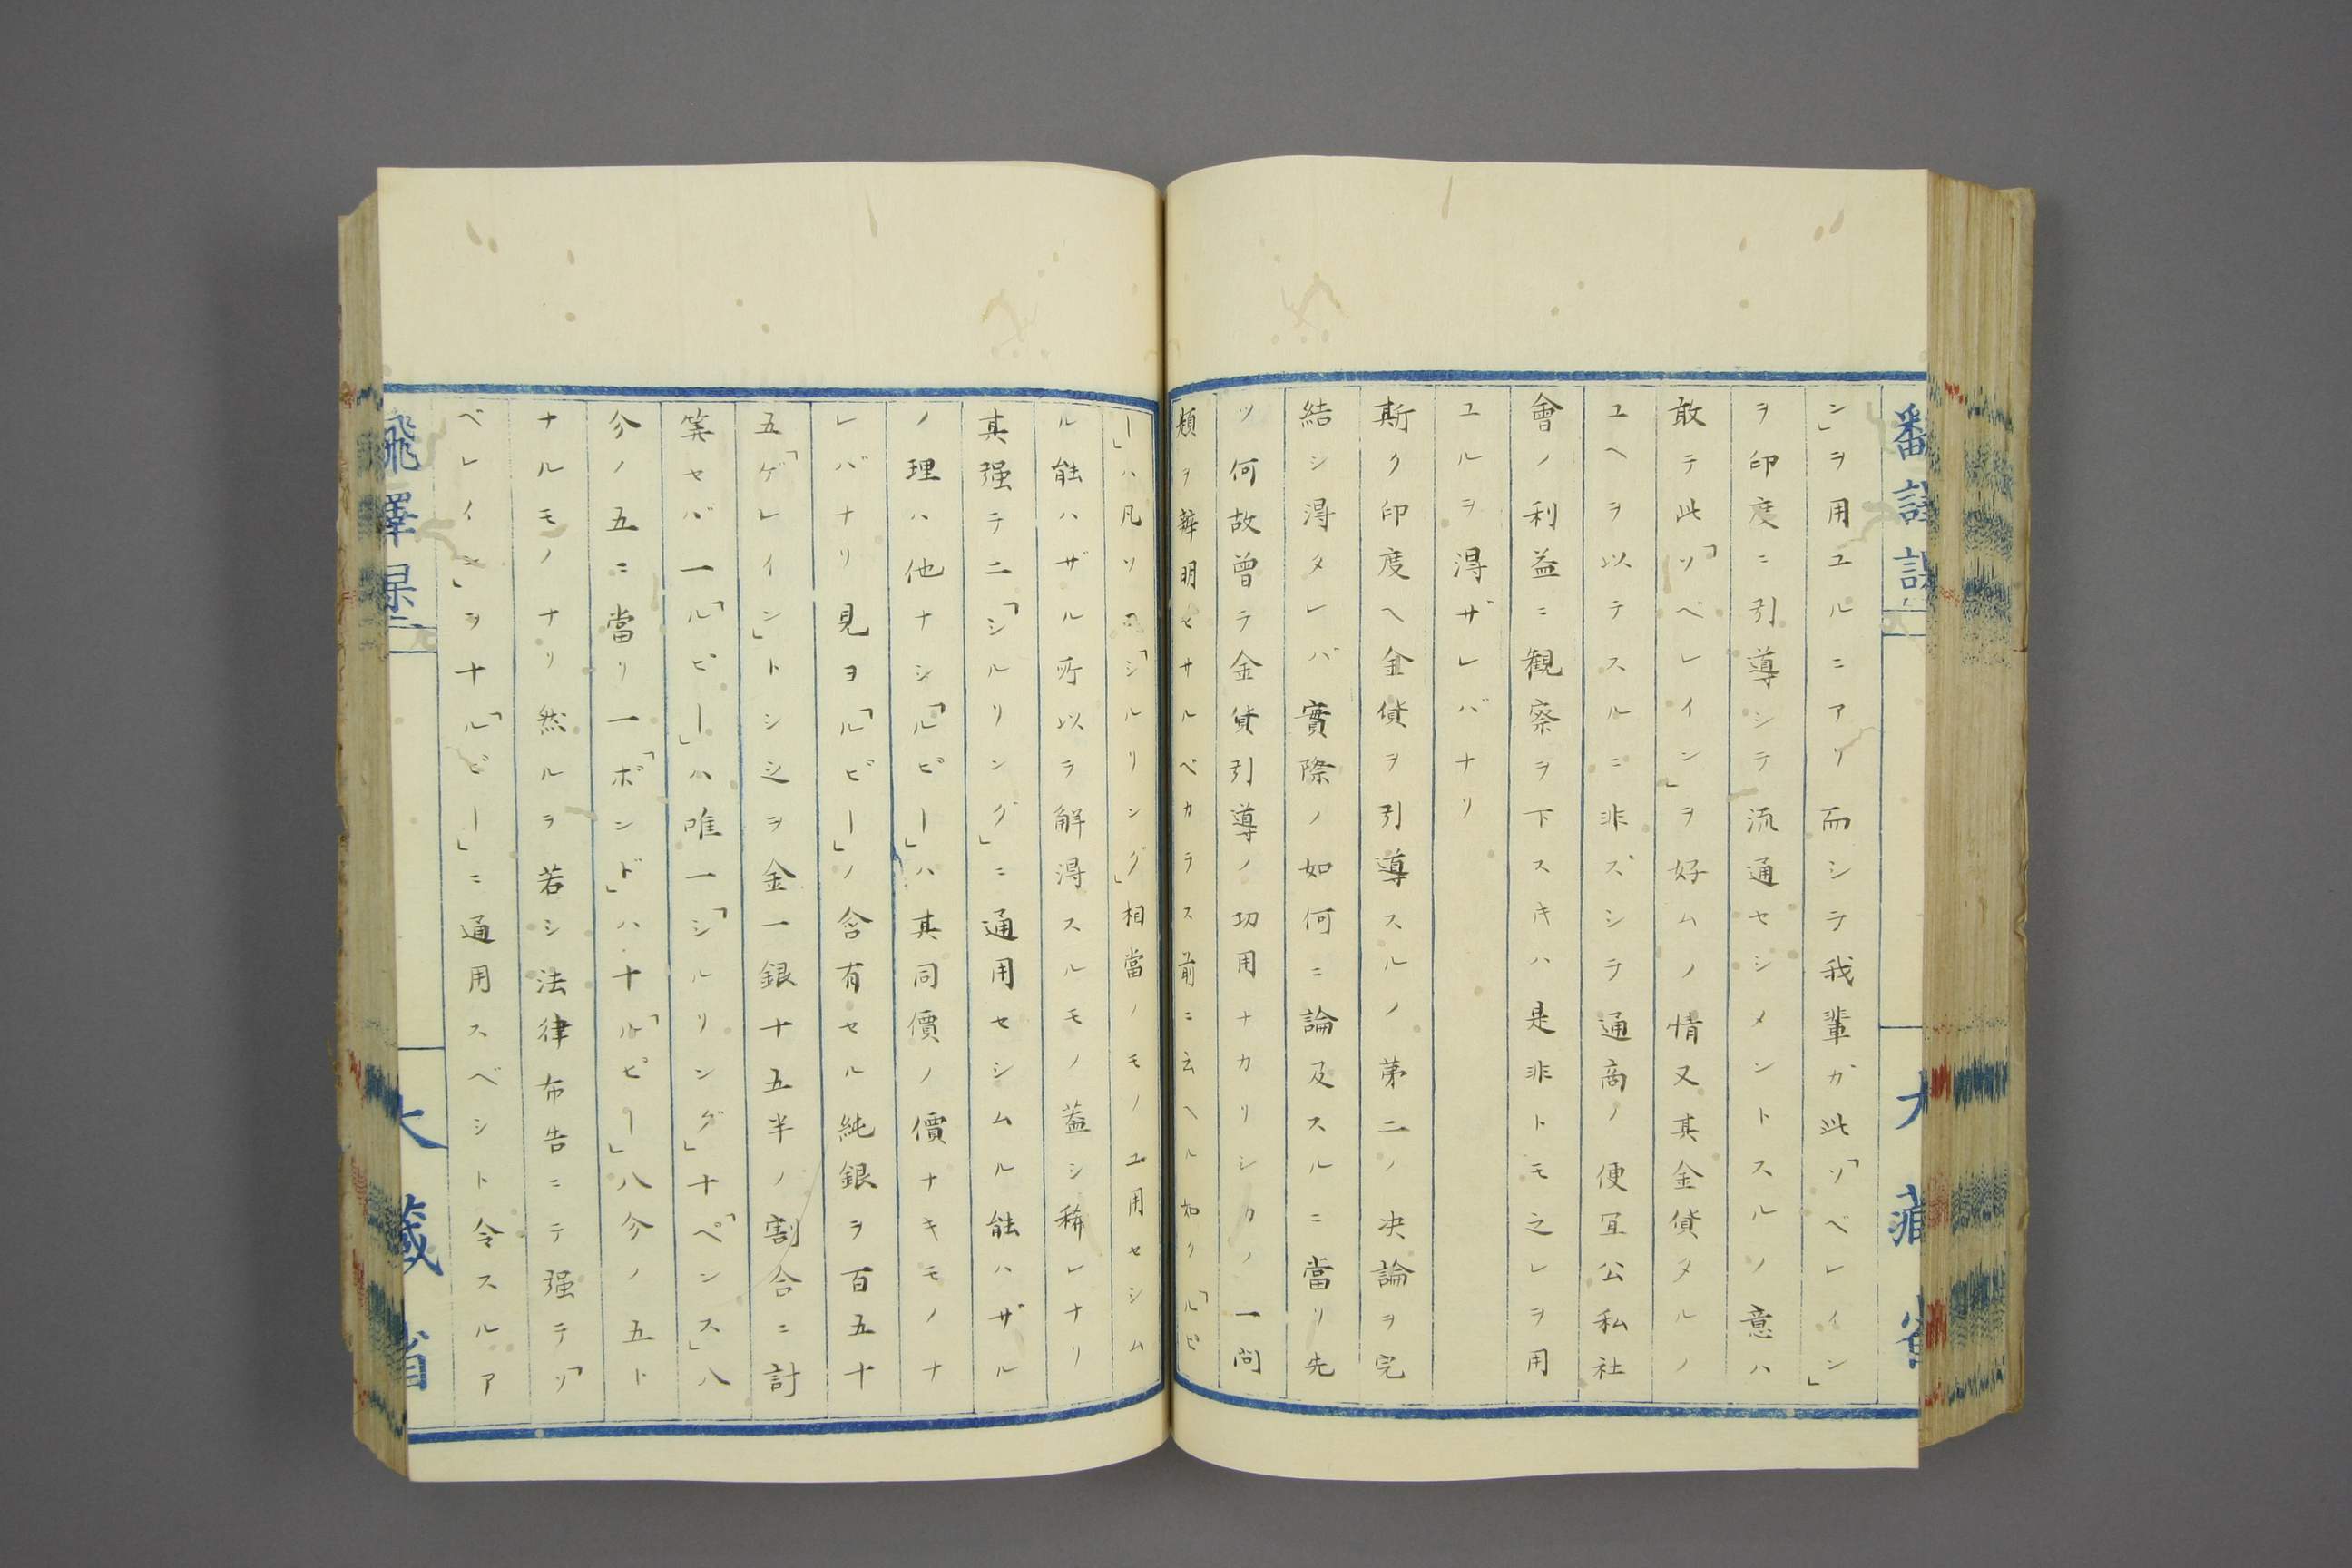 ン」ヲ用ユルニアリ而シテ我輩カ此「ソベレイン」
ヲ印度ニ引導シテ流通セシメントスルノ意ハ
敢テ此「ソベレイン」ヲ好ムノ情又其金貨タルノ
ユヘヲ以テスルニ非ズシテ通商ノ便宜公私社
會ノ利益ニ観察ヲ下スキハ是非トモ之レヲ用
ユルヲ得ザレバナリ
斯ク印度ヘ金貨ヲ引導スルノ第二ノ决論ヲ完
結シ得タレバ實際ノ如何ニ論及スルニ當リ先
ツ何故曾テ金貨引導ノ功用ナカリシカノ一問
題ヲ辨明セサルベカラス前ニ云ヘル如ク「ルピ
ー」ハ凡ソ「シルリング」相當ノモノユ用セシム
ル能ハザル所以ヲ解得スルモノ蓋シ稀レナリ
其强テ二「シルリング」ニ通用セシムル能ハザル
ノ理ハ他ナシ「ルピー」ハ其同價ノ價ナキモノナ
レバナリ見ヨ「ルピー」ノ含有セル純銀ヲ百五十
五「ゲレイン」トシ之ヲ金一銀十五半ノ割合ニ計
筭セバ一「ルピー」ハ唯一「シルリング」十「ペンス」八
分ノ五ニ當リ一「ボンド」ハ十「ルピー」八分ノ五ト
ナルモノナリ然ルヲ若シ法律布告ニテ强テ「ソ
ベレイン」ヲ十「ルピー」ニ通用スベシト令スルア
大藏省